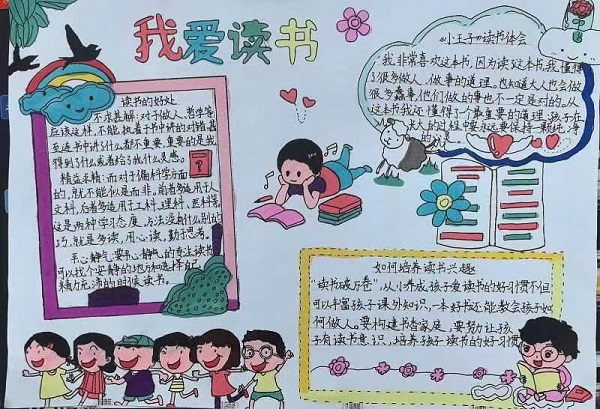 我爱读书
《小王子》读书体会
"我非常喜欢这本书,因为读这本书,我懂得
了很多做人、做事的道理,也知道大人也会做
很多蠢事,他们做的事也不一定是对的。从
这本书我还懂得了最重要的道理:孩子在
长大的过程中要永远要保持一颗纯净
的心
读书的好处
不求甚解:对于做人、哲学等
应该这样,不能抠着书中讲的对错,甚
至连书中讲什么都不重要,重要的是我
得到了什么或者给了我什么灵感。
精益求精:而对于偏科学方面
的,就不能似是而非,前者多适用于人
文科,后者多适用于工科、理科、医科等。
这是两种学习态度,方法没有什么别的
巧,就是多读,用心读,勤于思考。
平心静气:要平心、静气的专注读书
可以找个安静的地方,如选择自己
精力充沛的时候读书。
如何培养读书兴趣
"读书破万卷",从小养成孩子爱读书的好习惯,不但
可以丰富孩子课外知识,一本好书还能教会孩子如
何做人。要构建书香家庭,要努力让孩
子有读书意识,培养孩子读书的好习惯